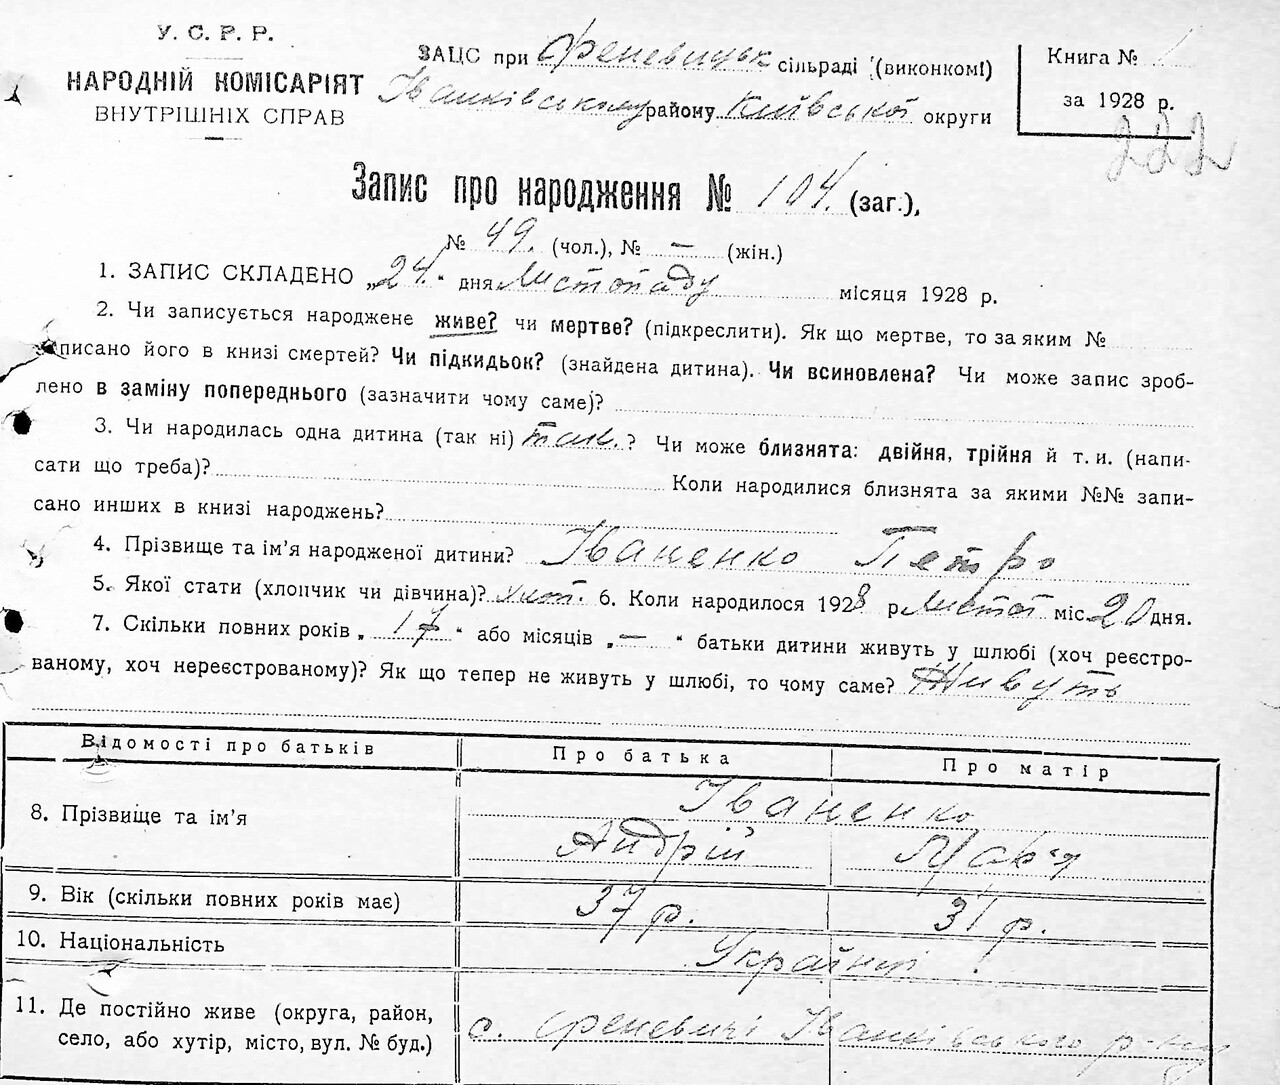 У. С. Р. Р.
НАРОДНІЙ КОМІСАРІЯТ
ВНУТРІШНІХ СПРАВ
ЗАЦС при Френевицьк сільраді (виконкомі)
Іванківському району Київської округи
Книга № 1
за 1928 р.
222
Запис про народження № 104. (заг.),
№ 49. (чол.), № — (жін.)
1. ЗАПИС СКЛАДЕНО „24.“ дня Листопаду місяця 1928 р.
2. Чи записується народжене живе? чи мертве? (підкреслити). Як що мертве, то за яким №
записано його в книзі смертей? Чи підкидьок? (знайдена дитина). Чи всиновлена? Чи може запис зроб-
лено в заміну попереднього (зазначити чому саме)?
3. Чи народилась одна дитина (так ні) так.? Чи може близнята: двійня, трійня й т. и. (напи-
сати що треба)? Коли народилися близнята за якими №№ запи-
сано инших в книзі народжень?
4. Прізвище та ім’я народженої дитини? Іваненко Петро
5. Якої стати (хлопчик чи дівчина)? хлоп. 6. Коли народилося 1928 р Листоп міс. 20 дня.
7. Скільки повних років „17“ або місяців „—“ батьки дитини живуть у шлюбі (хоч реєстро-
ваному, хоч нереєстрованому)? Як що тепер не живуть у шлюбі, то чому саме? Живуть
Відомості про батьків Про батька Про матір
8. Прізвище та ім’я Іваненко
Андрій Мар’я
9. Вік (скільки повних років має) 37 р. 31 р.
10. Національність Українці
11. Де постійно живе (округа, район,
село, або хутір, місто, вул. № буд.) с. Френевичі Іванківського р-ну